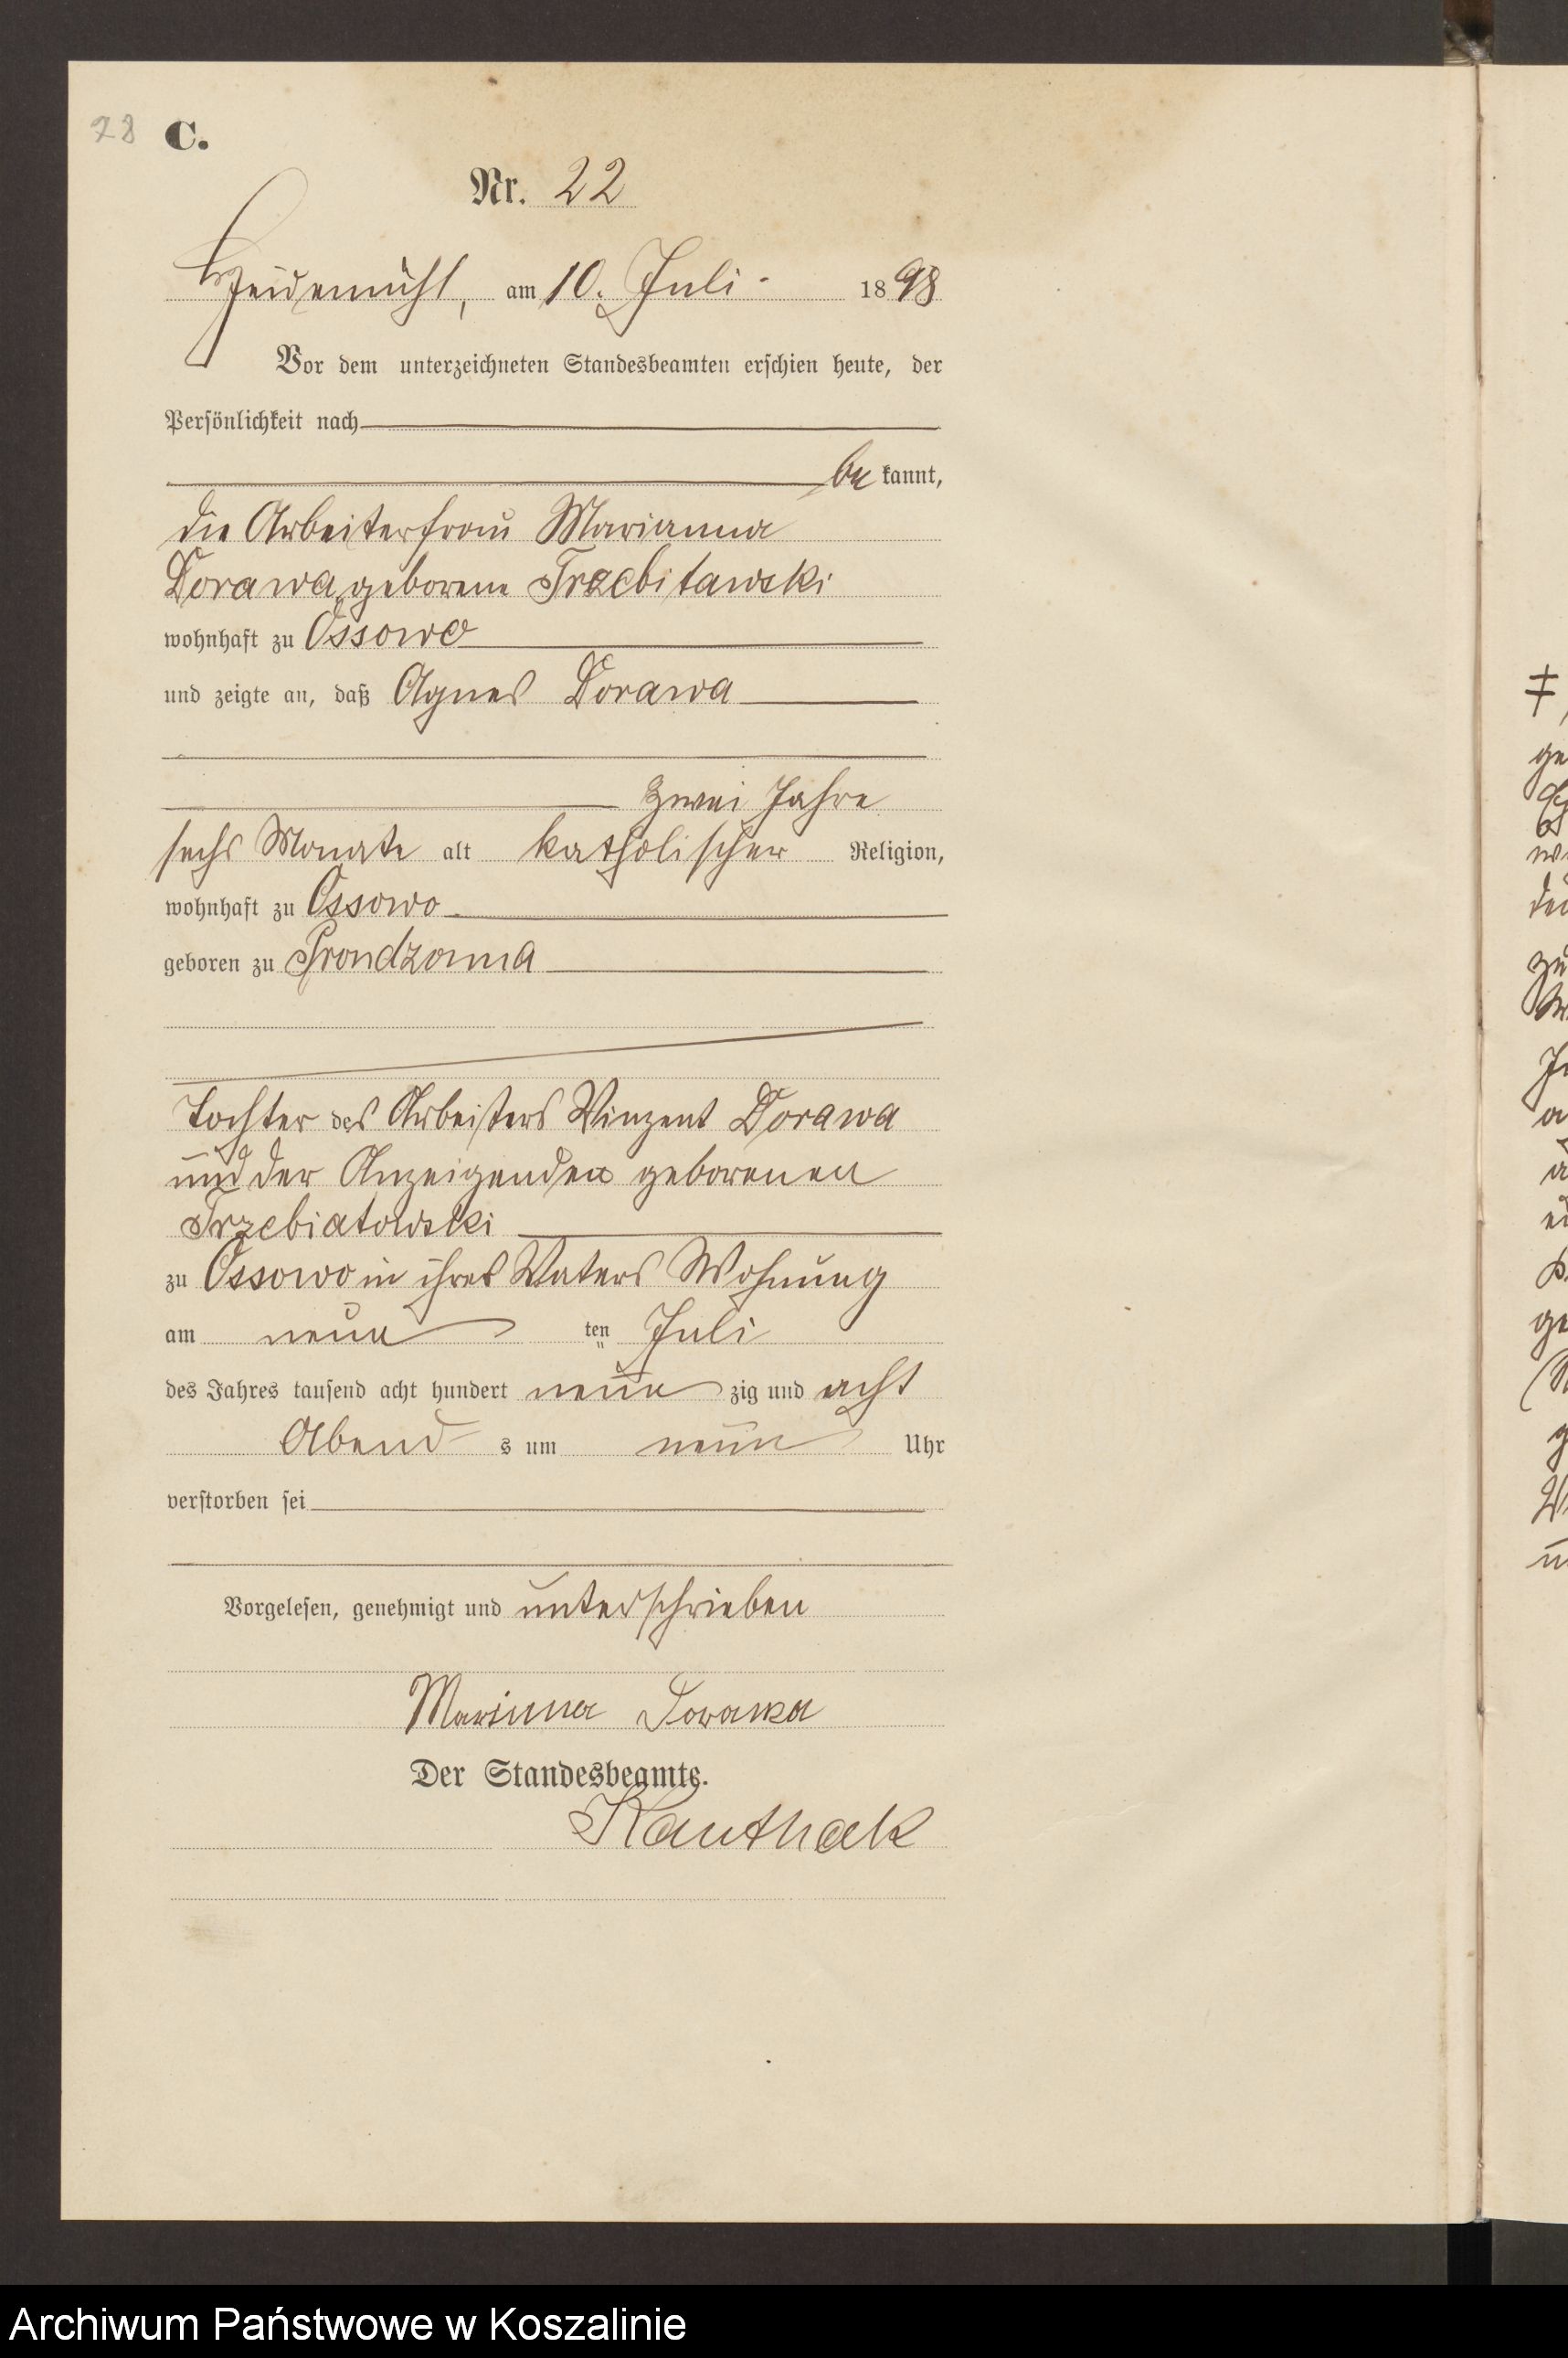 28 C.
Nr. 22
Heidemühl, am 10. Juli 1898
Vor dem unterzeichneten Standesbeamten erschien heute, der
Persönlichkeit nach
be kannt,
die Arbeiterfrau Marianna
Dorawa, geborene Trzebitawski
wohnhaft zu Ossowo
und zeigte an, daß Agnes Dorawa
zwei Jahre
sechs Monate alt katholischer Religion,
wohnhaft zu Ossowo
geboren zu Prondzonna
Tochter des Arbeiters Vinzent Dorawa
und der Anzeigenden geborenen
Trzebiatowski
zu Ossowo in ihres Vaters Wohnung
am neun ten Juli
des Jahres tausend acht hundert neun zig und acht
Abend s um neun Uhr
verstorben sei
Vorgelesen, genehmigt und unterschrieben
Marianna Dorawa
Der Standesbeamte.
Kauthak
Archiwum Państwowe w Koszalinie